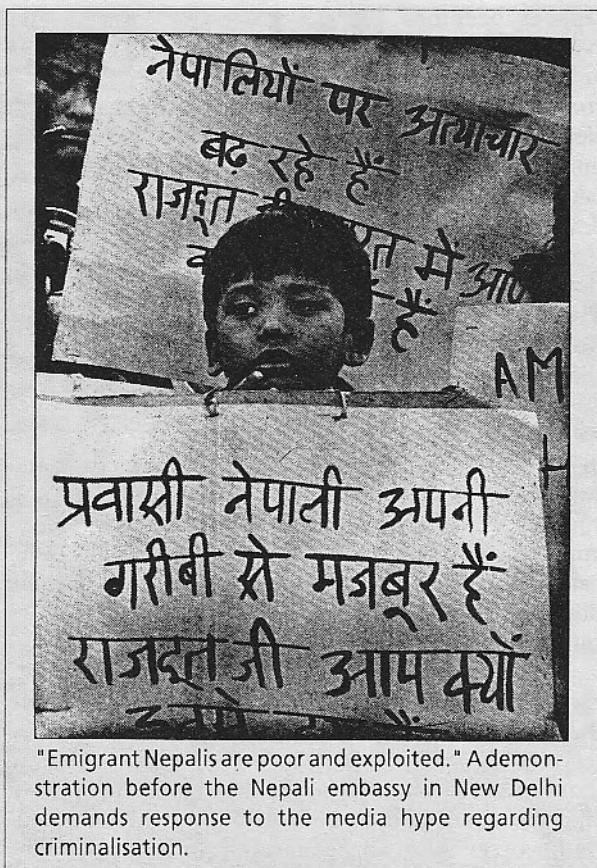 नेपालियों पर अत्याचार
बढ़ रहे हैं
राजदूत में
हैं
AM
प्रवासी नेपाली अपनी
गरीबी से मजबूर हैं
राजदूत जी आप क्यों
"Emigrant Nepalis are poor and exploited." A demon-
stration before the Nepali embassy in New Delhi
demands response to the media hype regarding
criminalisation.